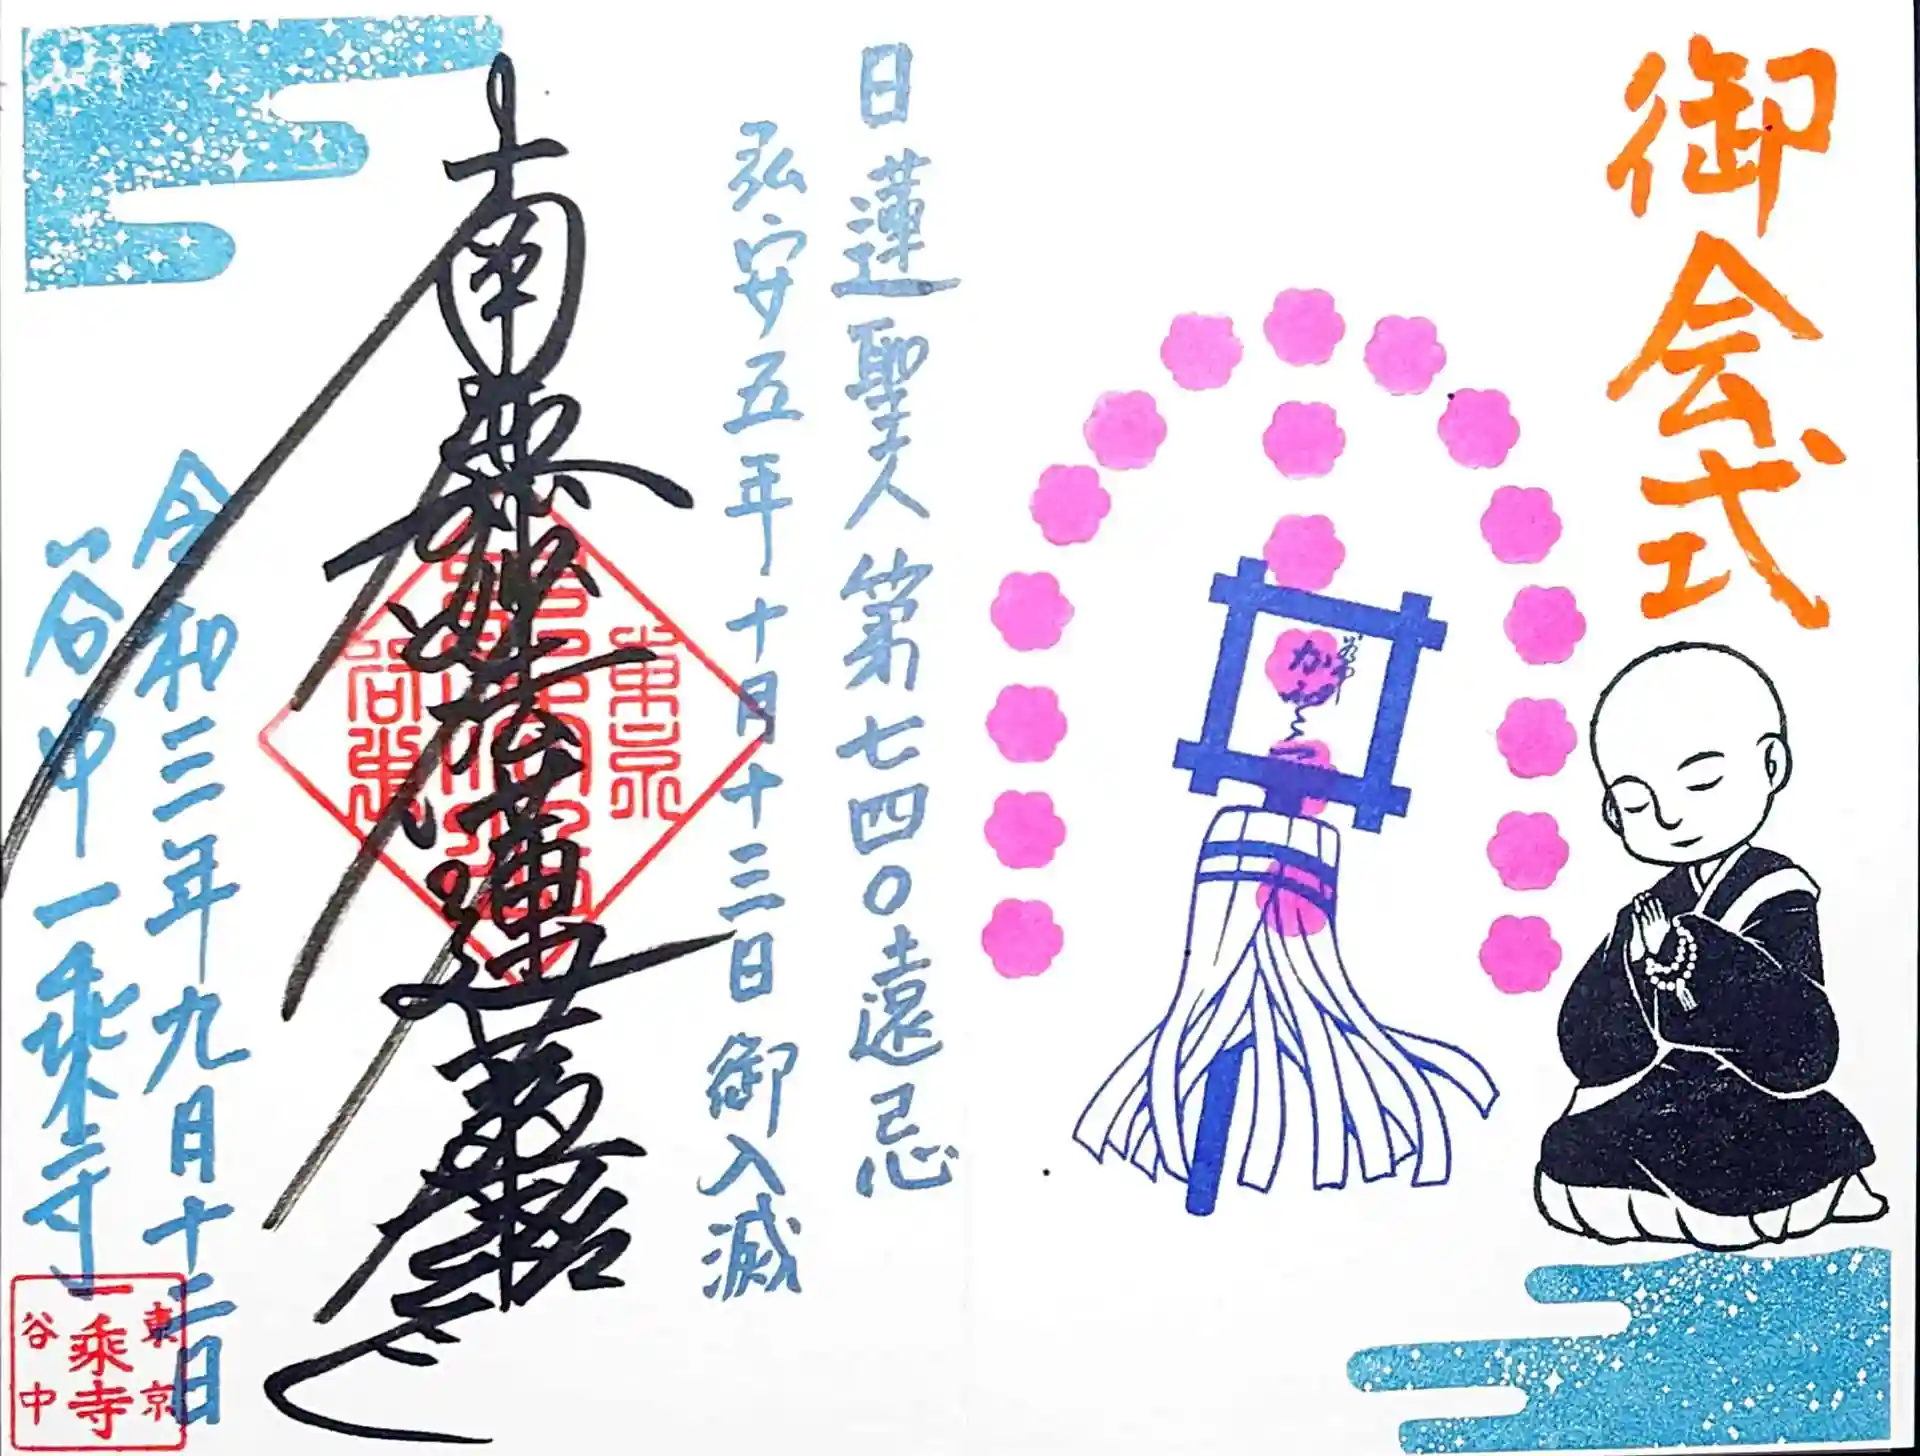 御会式
日蓮聖人第七四〇遠忌
弘安五年十月十三日御入滅
南無妙法蓮華経
令和三年九月十二日
谷中一乗寺
東京
一乗寺
谷中